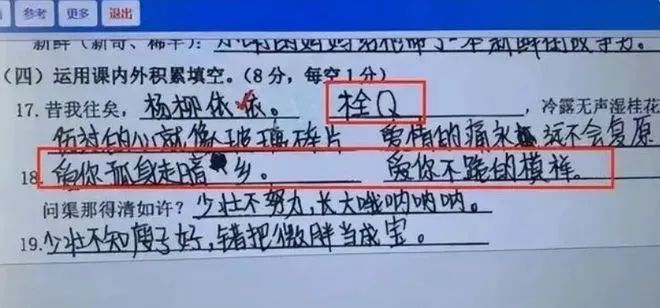 参考 更多 退出
(四)运用课内外积累填空。(8分,每空1分)
17. 昔我往矣, 杨柳依依。 栓Q ,冷露无声湿桂花
伤过的心就像玻璃碎片 爱情的痛永远不会复原
18. 爱你孤身走暗乡。 爱你不跪的模样。
问渠那得清如许? 少壮不努力,长大哦呐呐呐。
19. 少壮不知瘦子好,错把微胖当成宝。